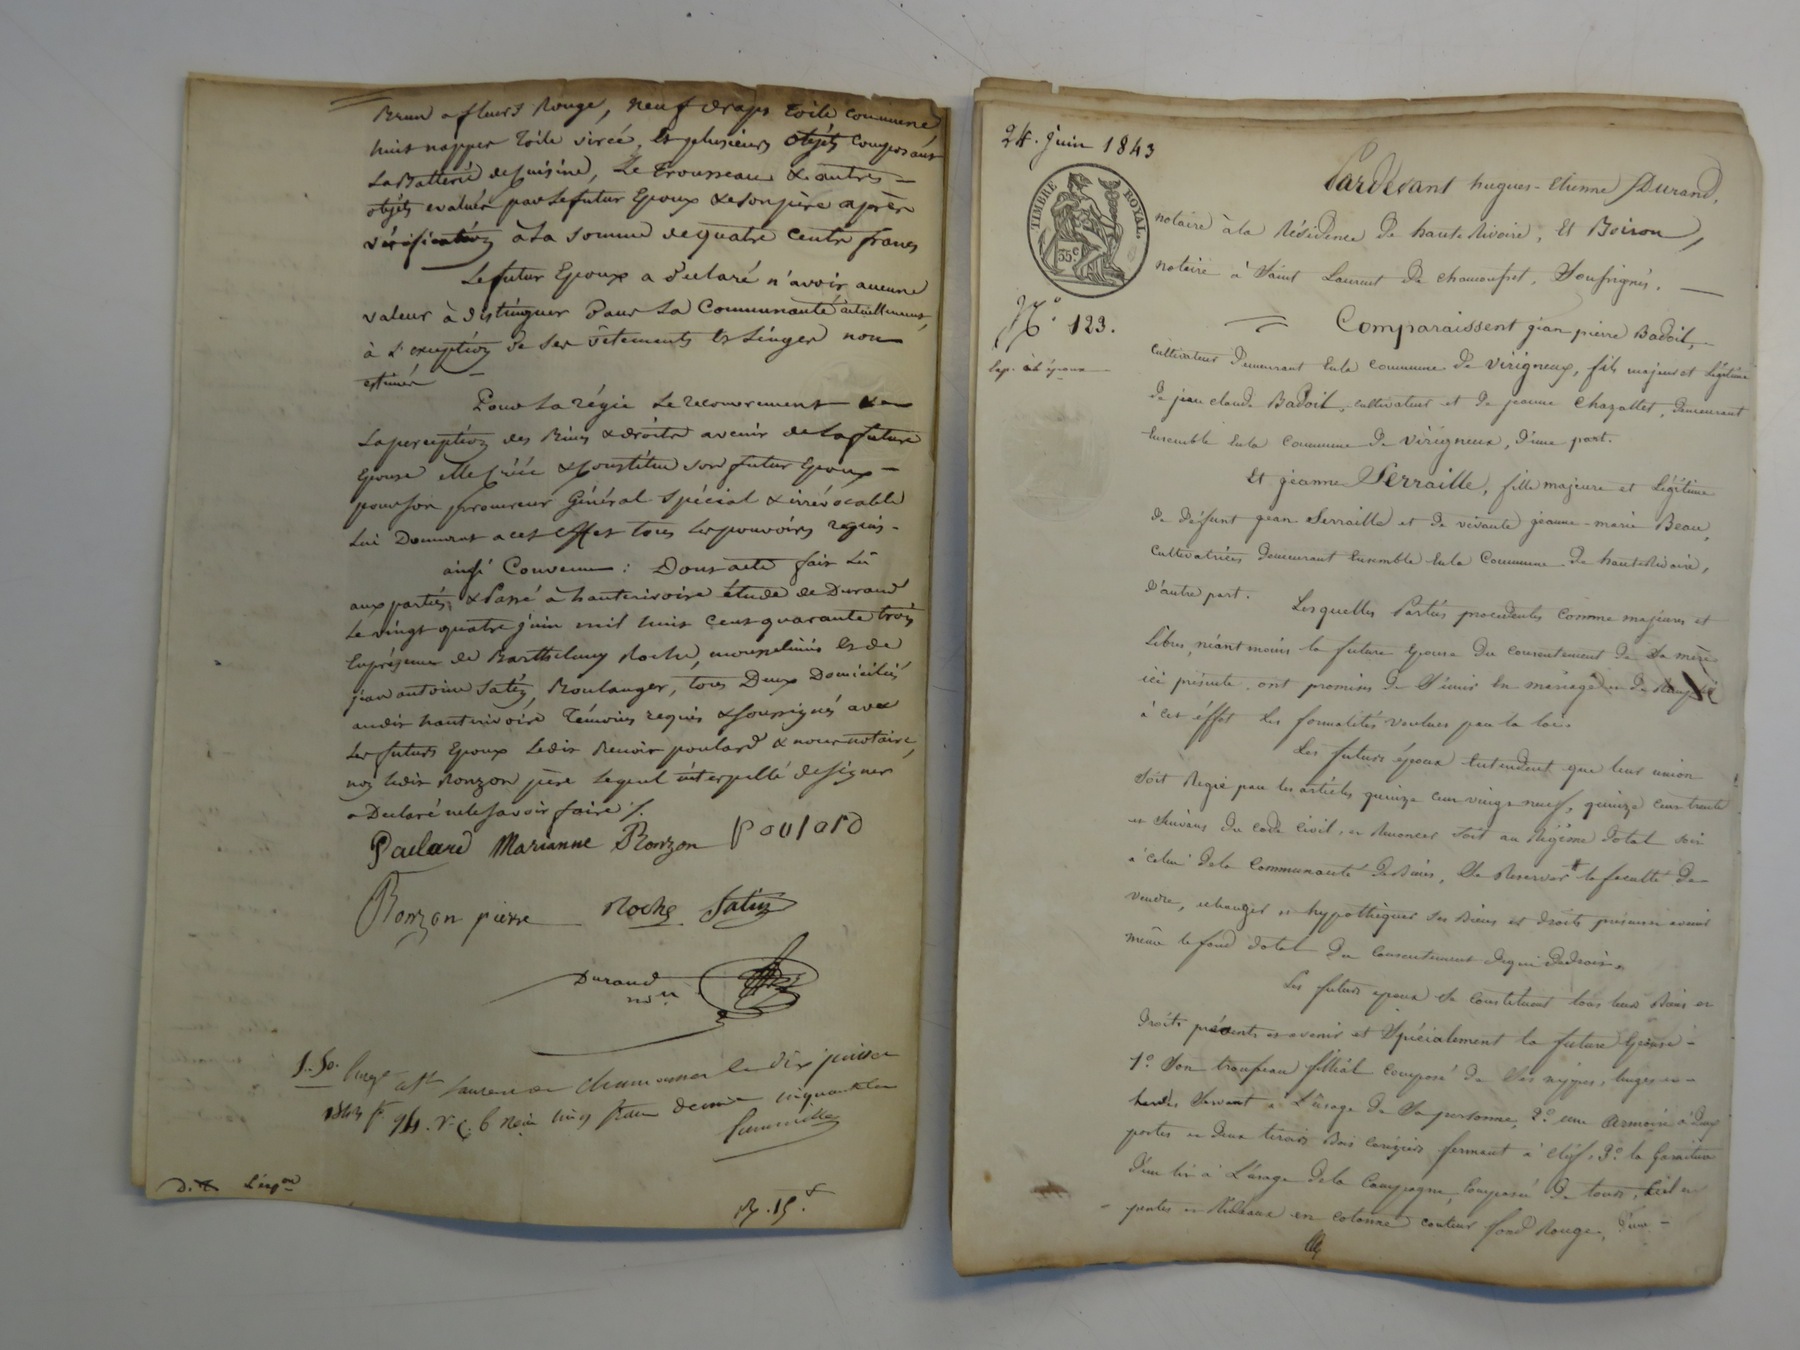 Brun a fleurs Rouge, neuf draps toile commune
huit nappes toile circé, et plusieurs objets composant
La Batterie de cuisine, Le trousseau & autres
objets evalués par le futur Epoux & de son père après
vérification à la somme de quatre cents francs
Le futur Epoux a déclaré n'avoir aucune
valeur à distinguer dans La Communauté actuellement,
à L'exception de ses vêtements et Linges non
estimés
Pour La régie Le recouvrement &
La perception des Biens & droits avenir de La future
Epouse elle créé & constitue son futur Epoux
pour son procureur Général spécial & irrévocable
Lui Donnant a cet effet tous les pouvoirs requis.
ainsi Convenu : Dont acte fait Lu
aux parties & Passé à hauterivoire étude de Durand
Le vingt quatre juin mil huit cent quarante trois
En présence de Barthelemy Roche, et de
jean antoine Satin, Boulanger, tous Deux Domiciliés
audit hauterivoire témoins requis & soussignés avec
Les futurs Epoux Ledit Benoit poulard & nous notaire,
non ledit Ronzon père Lequel interpellé de signer
a Déclaré ne le savoir faire /.
Paulard Marianne Ronzon poulard
Ronzon pierre Roche Satin
Durand
nre
St Laurent de Chamousset le dix juillet
1843 f° 94. V. c. 6 Reçu cinq francs decime cinquante c
D. Exp.on
R. 15.f
24. Juin 1843
TIMBRE ROYAL.
35c
N.° 123.
Exp. époux
Pardevant hugues-Etienne Durand,
notaire à la Résidence de haute Rivoire, Et Boiron,
notaire à Saint Laurent de Chamousset, Soussignés.
Comparaissent jean pierre Badoil,
Cultivateur Demeurant En la Commune de Virigneux, fils majeur et Légitime
de jean claude Badoil, cultivateur et de jeanne Chazallet, Demeurant
Ensemble En la Commune de Virigneux, d'une part.
Et jeanne Serraille, fille majeure et Légitime
de défunt jean Serraille et de vivante jeanne-marie Beau,
Cultivatrices Demeurant Ensemble En la Commune de haute Rivoire,
d'autre part.
Lesquelles Parties procédentes Comme majeures et
Libres, néant moins la future Epouse Du Consentement de Sa mère
ici présente, ont promises de S'unir En mariage et de Remplir
à cet éffet Les formalités voulues par la loi.
Les futurs époux Entendent que leur union
Soit Régie par les articles quinze cent vingt neuf, quinze cent trente
et Suivans du code Civil, et Renoncer Soit au Régime Dotal soit
à celui de la Communauté de Biens, Se Reserver la faculté de
vendre, echanger et hypothèquer Ses Biens et droits présens avenir
même le fond dotal Du Consentement de qui de droit.
Les futurs époux Se Constituent tous leurs Biens et
Droits présents et avenir et Spécialement la future Epouse
1.° Son troupeau fillial Composé de Ses nippes, linges et
hardes Servant à L'usage de Sa personne, 2.° une Armoire à Deux
portes et deux tiroirs Bois Cerisiers fermant à Clef, 3.° la Garniture
D'un lit à L'usage de la Campagne, Composé de tours, Ciel et
pentes et Rideaux en Cotonne couleur fond Rouge, d'une